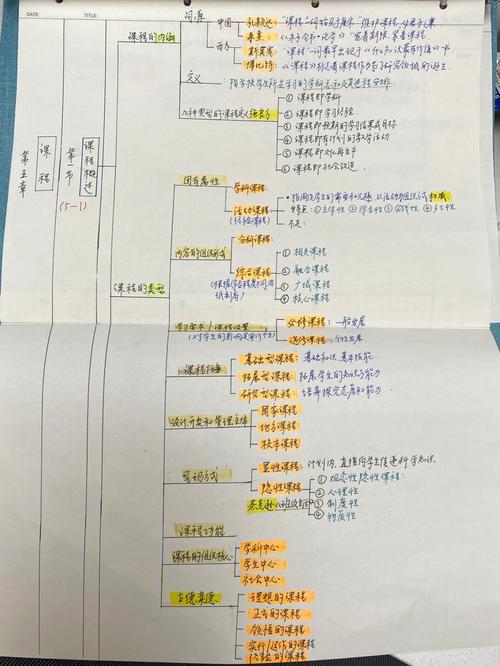 NO.
DATE
TITLE
第五章
课程
第一节
(5-1)
课程概述
课程的内涵
词源
中国
孔颖达:"课程"一词始见于唐体"维护课程,必君子之意
朱熹:《朱子全书·论学》"宽着期限,紧着课程
西方
斯宾塞:"课程"一词最早出现于《什么知识最有价值》中
博比特:《课程》标志着课程作为专门研究领域的诞生.
定义
:指学校学生所应学习的学科总和及其进程安排
几种类型的课程定义
① 课程即学科
② 课程即学习经验
③ 课程即预期的学习结果或目标
④ 课程即有计划的教学活动
⑤ 课程即文化再生产
⑥ 课程即社会改造.
课程的类型
固有属性
学科课程:
活动课程:
(经验课程)
特点:①主体性 ②综合性 ③实践性 ④
不足:
内容的组织形式
分科课程:
综合课程:
① 相关课程
② 融合课程
③ 广域课程
④ 核心课程
必修课程:一般发展
选修课程:个性发展.
课程任务
基础型课程:基础知识、基本技能
拓展型课程:拓展学生的知识与能力
研究型课程:培养探究态度和能力.
设计开发和管理主体
国家课程
地方课程
校本课程
呈现方式
显性课程:计划内,直接向学生传递科学知识.
隐性课程:
① 观念性隐性课程:
② 心理性
③ 制度性
④ 物质性
课程功能
课程的组织核心
学科中心
学生中心
社会中心
古德莱德
理想的课程
正式的课程
领悟的课程
实行/运作的课程
经验的课程